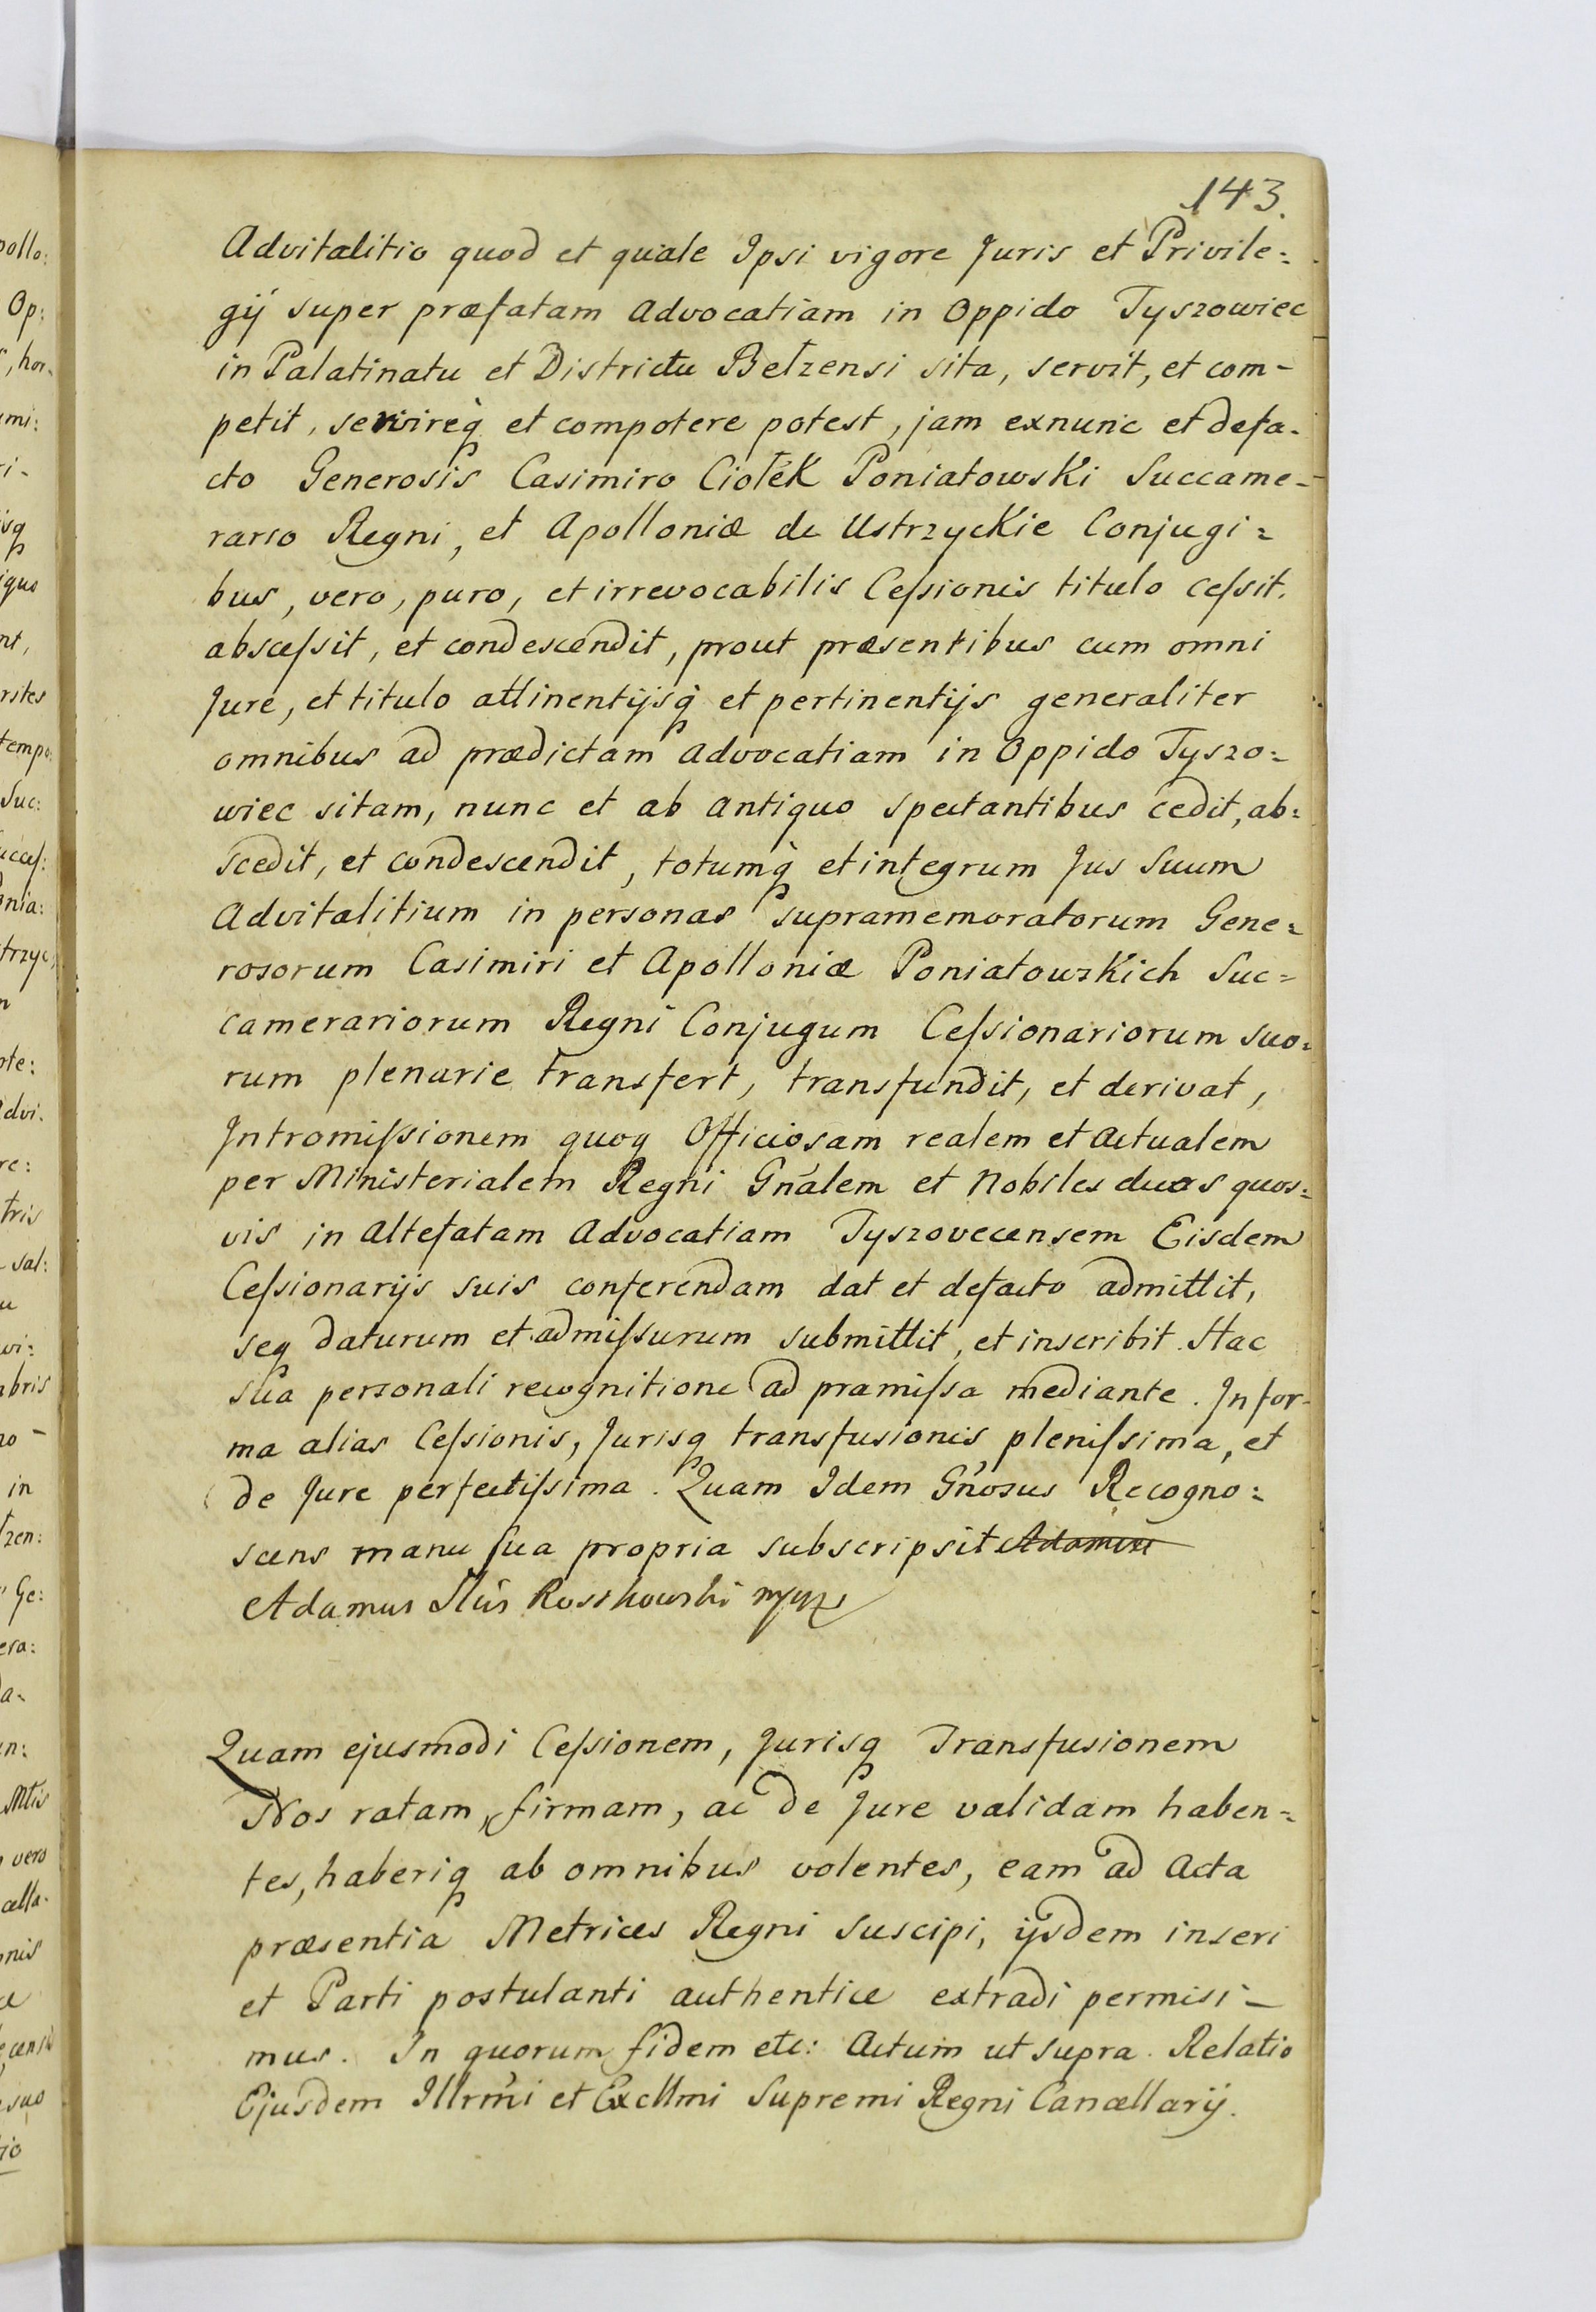 143.
Advitalitio quod et quale Ipsi vigore Juris et Privile=
gij super præfatam Advocatiam in Oppido Tyszowiec
in Palatinatu et Districtu Bełzensi sita, servit, et com-
petit, servireq̀ et compotere potest, jam exnunc et defa-
cto Generosis Casimiro Ciołek Poniatowski Succame-
rario Regni, et Apolloniæ de Ustrzyckie Conjugi=
bus, vero, puro, et irrevocabilis Ceſsionis titulo ceſsit.
absceſsit, et condescendit, prout præsentibus cum omni
Jure, et titulo attinentijsq̀ et pertinentijs generaliter
omnibus ad prædictam Advocatiam in Oppido Tyszo=
wiec sitam, nunc et ab antiquo spectantibus cedit, ab=
scedit, et condescendit, totumq̀ et integrum Jus Suum
Advitalitium in personas supramemoratorum Gene=
rosorum Casimiri et Apolloniæ Poniatowskich Suc=
camerariorum Regni Conjugum Ceſsionariorum suo=
rum plenarie transfert, transfundit, et derivat,
Intromiſsionem quoq Officiosam realem et Actualem
per Ministerialem Regni Gńalem et Nobiles duos quos=
vis in Altefatam Advocatiam Tyszovecensem Eisdem
Ceſsionarijs suis conferendam dat et defacto admittit,
seq daturum et admiſsurum submittit, et inscribit. Hac
sua personali recognitione ad pramiſsa mediante. In for-
ma alias Ceſsionis, Jurisq transfusionis pleniſsima, et
de Jure perfectiſsima. Quam Idem Gńosus Recogno=
scens manu ſua propria subscripsit Adamus
Adamus Roszkowski mpp
Quam ejusmodi Ceſsionem, Jurisq Transfusionem
Nos ratam, firmam, ac de Jure validam haben=
tes, haberiq ab omnibus volentes, eam ad Acta
præsentia Metrices Regni suscipi, ijsdem inseri
et Parti postulanti authentice extradi permisi-
mus. In quorum fidem etc: Actum ut supra. Relatio
Ejusdem Illrmi et Excllmi Supremi Regni Cancellarij.